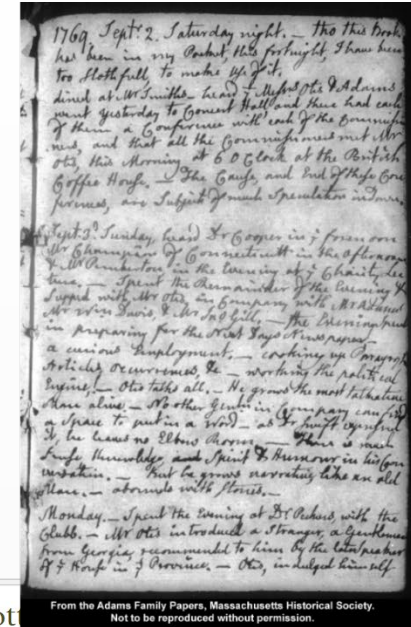 1769 Septr. 2. Saturday night. — tho this Book
has been in my Pocket this fortnight, I have been
too slothfull, to make use of it.
dined at Mr Smiths — heard Messrs Otis & Adams
went Yesterday to Concert Hall and there had each
of them a Conference with each of the Commissio
ners, and that all the Commissioners met Mr
Otis, this Morning at 6 O Clock at the British
Coffee House. — The Cause, and End of these Con
ferences, are Subjects of much Speculation
Septr. 3d. Sunday, heard Dr Cooper in ye forenoon
Mr Champion of Connecticutt in the afternoon
& Mr Pemberton in the Evening at ye Charity Lec
ture. — Spent the Remainder of the Evening &
Supped with Mr Otis, in Company with Mr Adams
Mr Wm Davis, & Mr Jno Gill, — the Evening spent
in preparing for the Next Days Newspaper —
a curious Employment. — cooking up Paragraphs
Articles, occurrences, &c — working the political
Engine. — Otis talks all. — He grows the most talkative
Man alive — No other Gentn in Company can find
a Space to put in a Word — as Dr Swift expressed
it, he leaves no Elbow Room. — There is much
Sense Knowledge and Spirit & Humour in his Con
versation. — But he grows narrative like an old
Man. — abounds with Stories. —
Monday. — Spent the Evening at Dr Peckers, with the
Clubb. — Mr Otis introduced a Stranger, a Gentleman
from Georgia, recommended to him by the late Speaker
of ye House in ye Province. — Otis, indulged himself
ott
From the Adams Family Papers, Massachusetts Historical Society.
Not to be reproduced without permission.